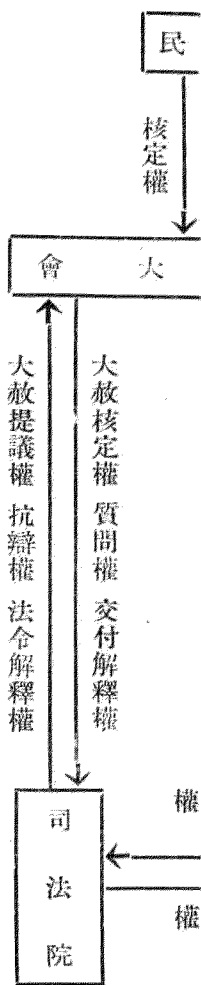 民
核定權
會大
大赦核定權 質問權 交付解釋權
大赦提議權 抗辯權 法令解釋權
權
權
司法院